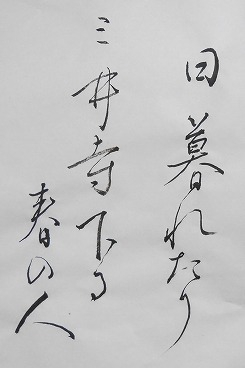 日暮れたり
三井寺下る
春の人